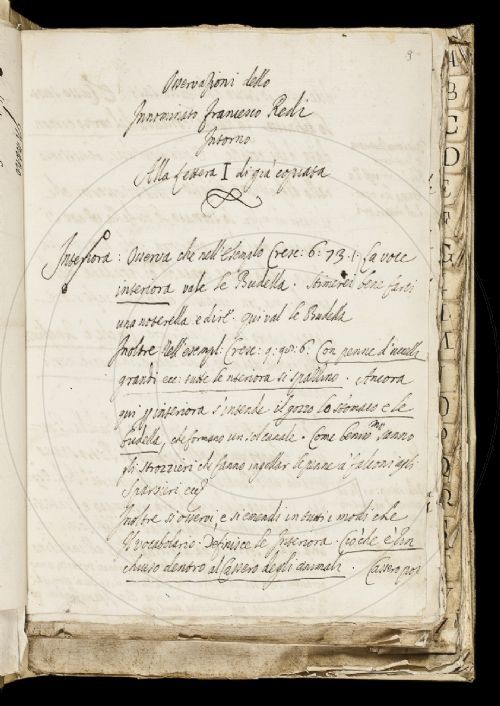 Osservazioni dello
Innominato Francesco Redi
Intorno
Alla Lettera I di già copiata
Interiora: Osserva che nell'Esempio Cresc: 6: 73. 1. La voce
interiora vale le Budella. Stimerei bene farci
una noterella e dire: qui val le Budella
Inoltre Nell'esempl: Cresc: 9: 90: 6: Con penne d'uccelli
grandi ecc: tutte le nteriora si spallino. Ancora
qui p interiora s'intende il gozzo lo stomaco e le
budella, che formano un sol canale. Come benis.mo sanno
gli strozzieri che fanno ingollar le piume a' falconi agli
Sparvieri ecc
Inoltre si osservi e si emendi in tutti i modi che
Il vocabolario Definisce le Interiora Ciò che è rin
chiuso dentro al Cassero degli animali. Cassero poi
A
B
C
D
E
F
G